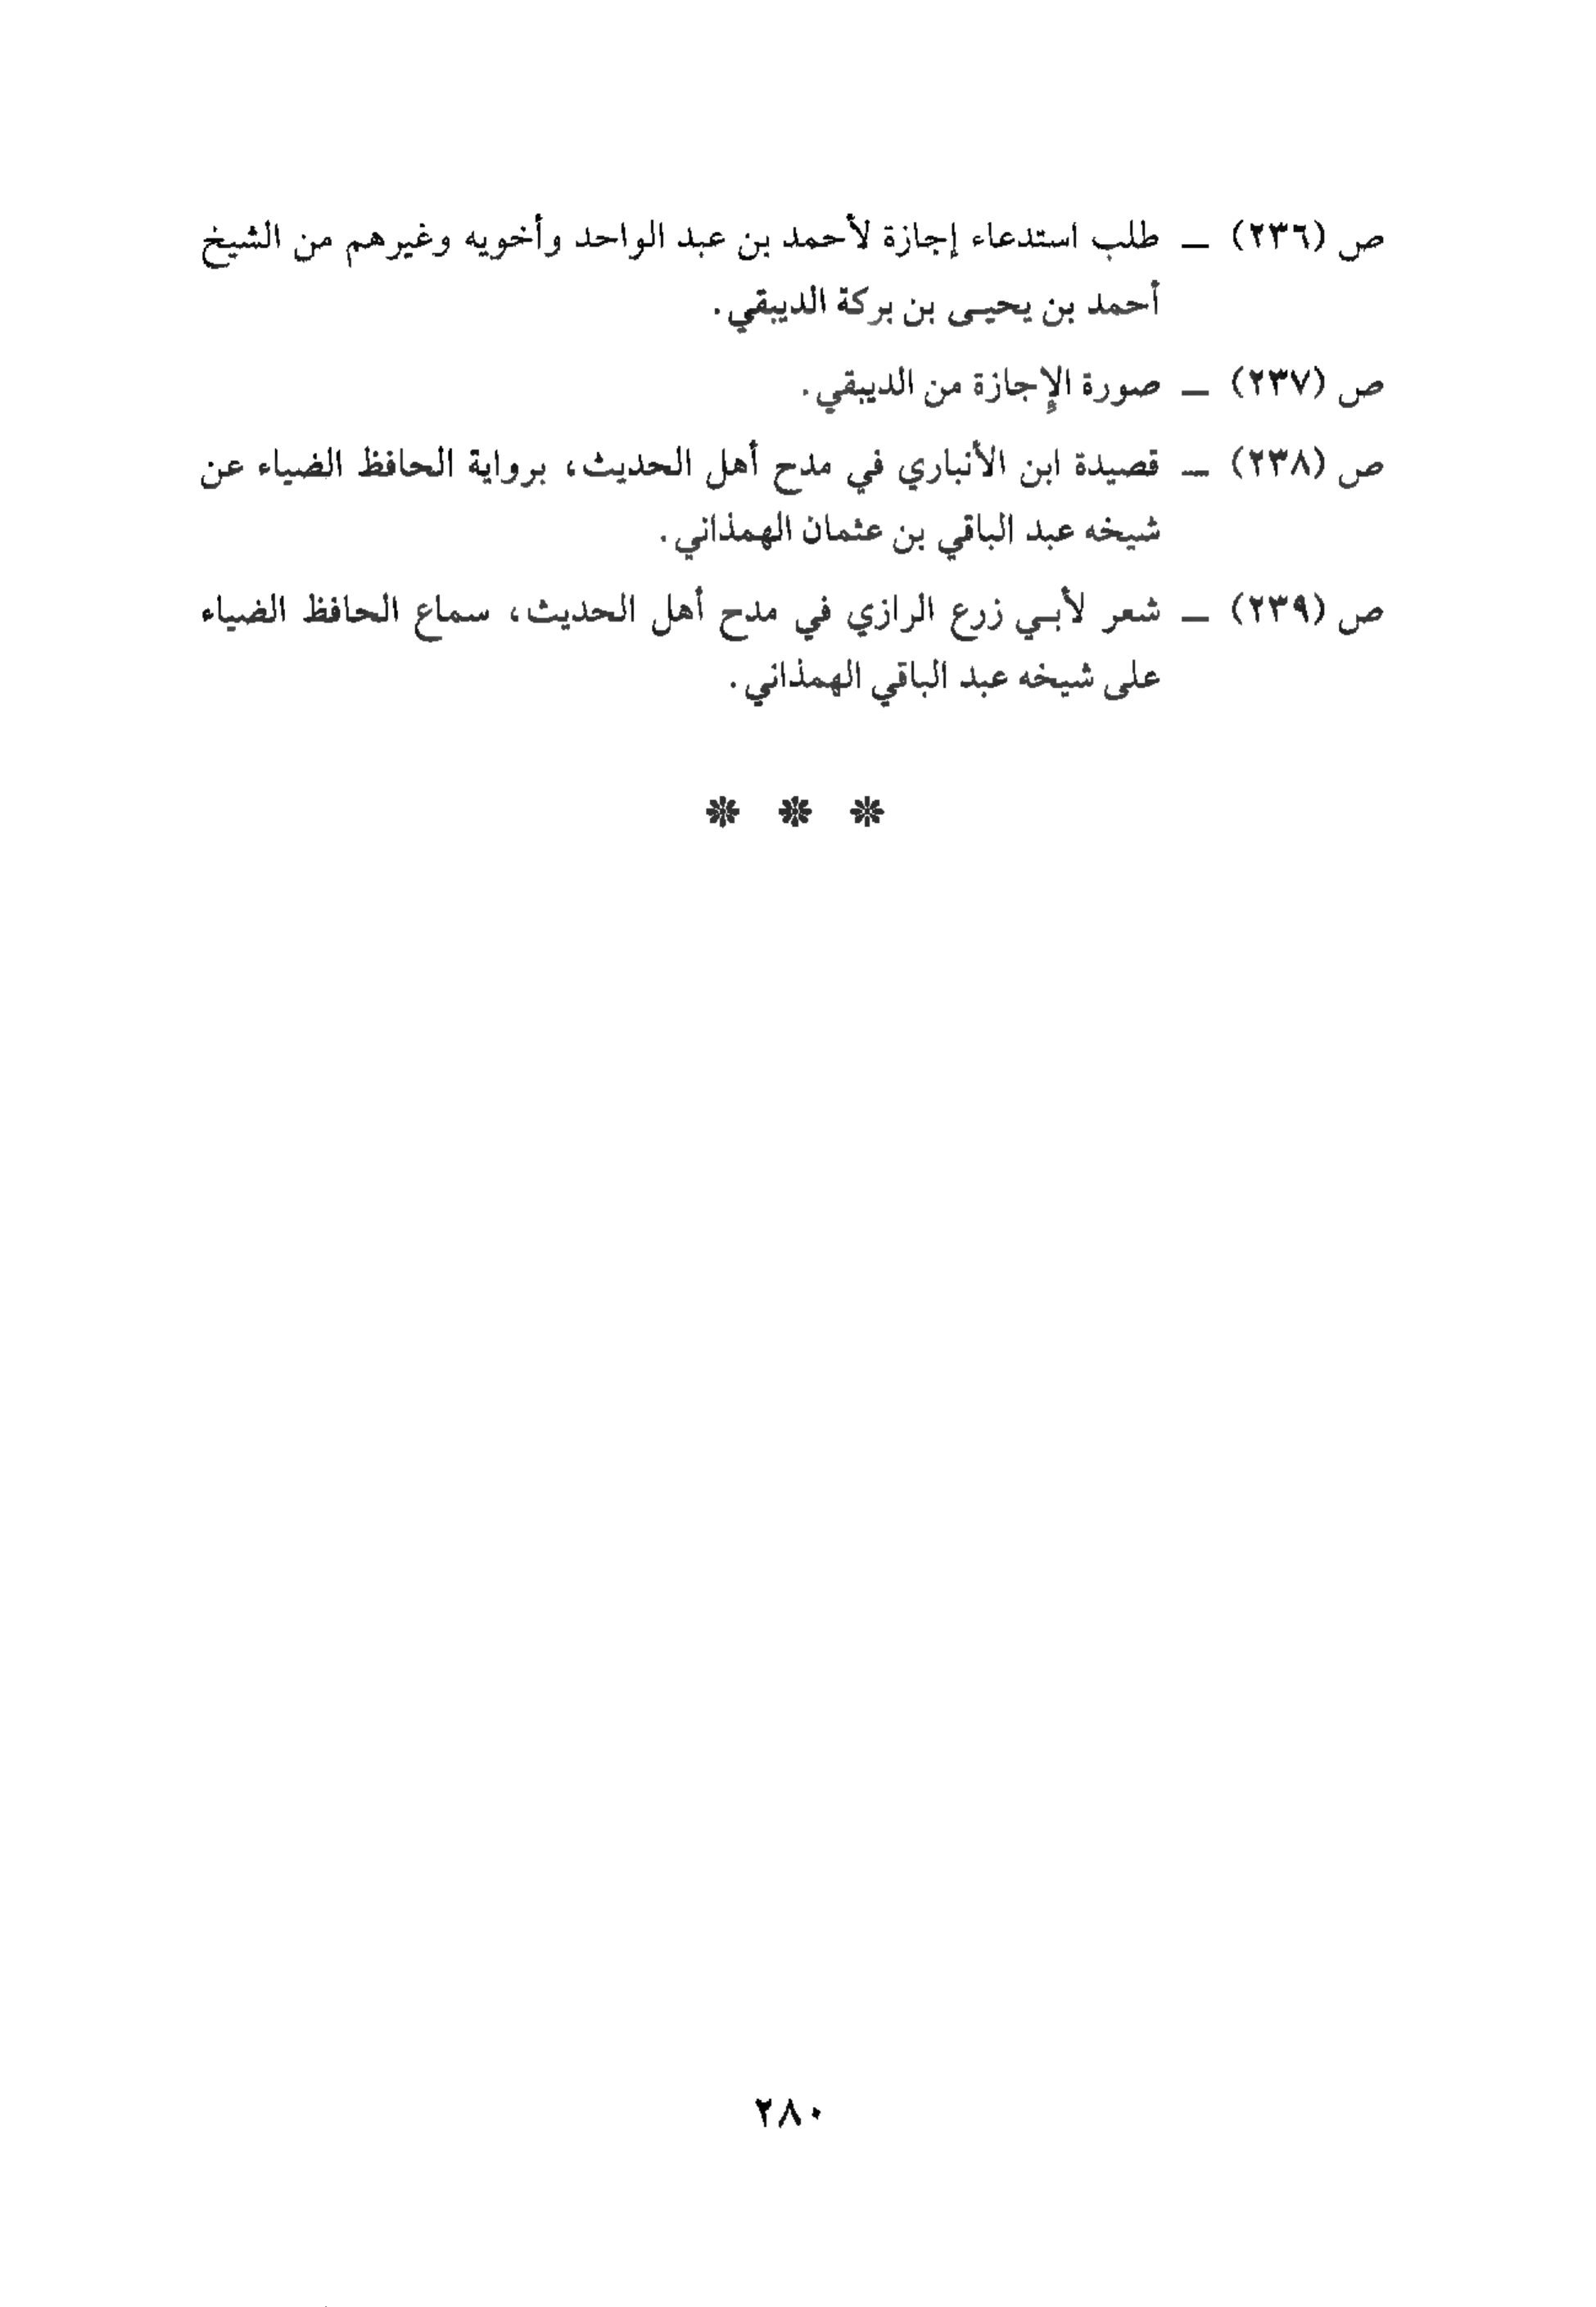 ص (٢٣٦) ــ طلب استدعاء إجازة لأحمد بن عبد الواحد وأخويه وغيرهم من الشيخ
أحمد بن يحيـى بن بركة الديبقي.
ص (٢٣٧) ــ صورة الإِجازة من الديبقي.
ص (٢٣٨) ــ قصيدة ابن الأنباري في مدح أهل الحديث، برواية الحافظ الضياء عن
شيخه عبد الباقي بن عثمان الهمذاني.
ص (٢٣٩) ــ شعر لأبـي زرع الرازي في مدح أهل الحديث، سماع الحافظ الضياء
على شيخه عبد الباقي الهمذاني.
* * *
٢٨٠